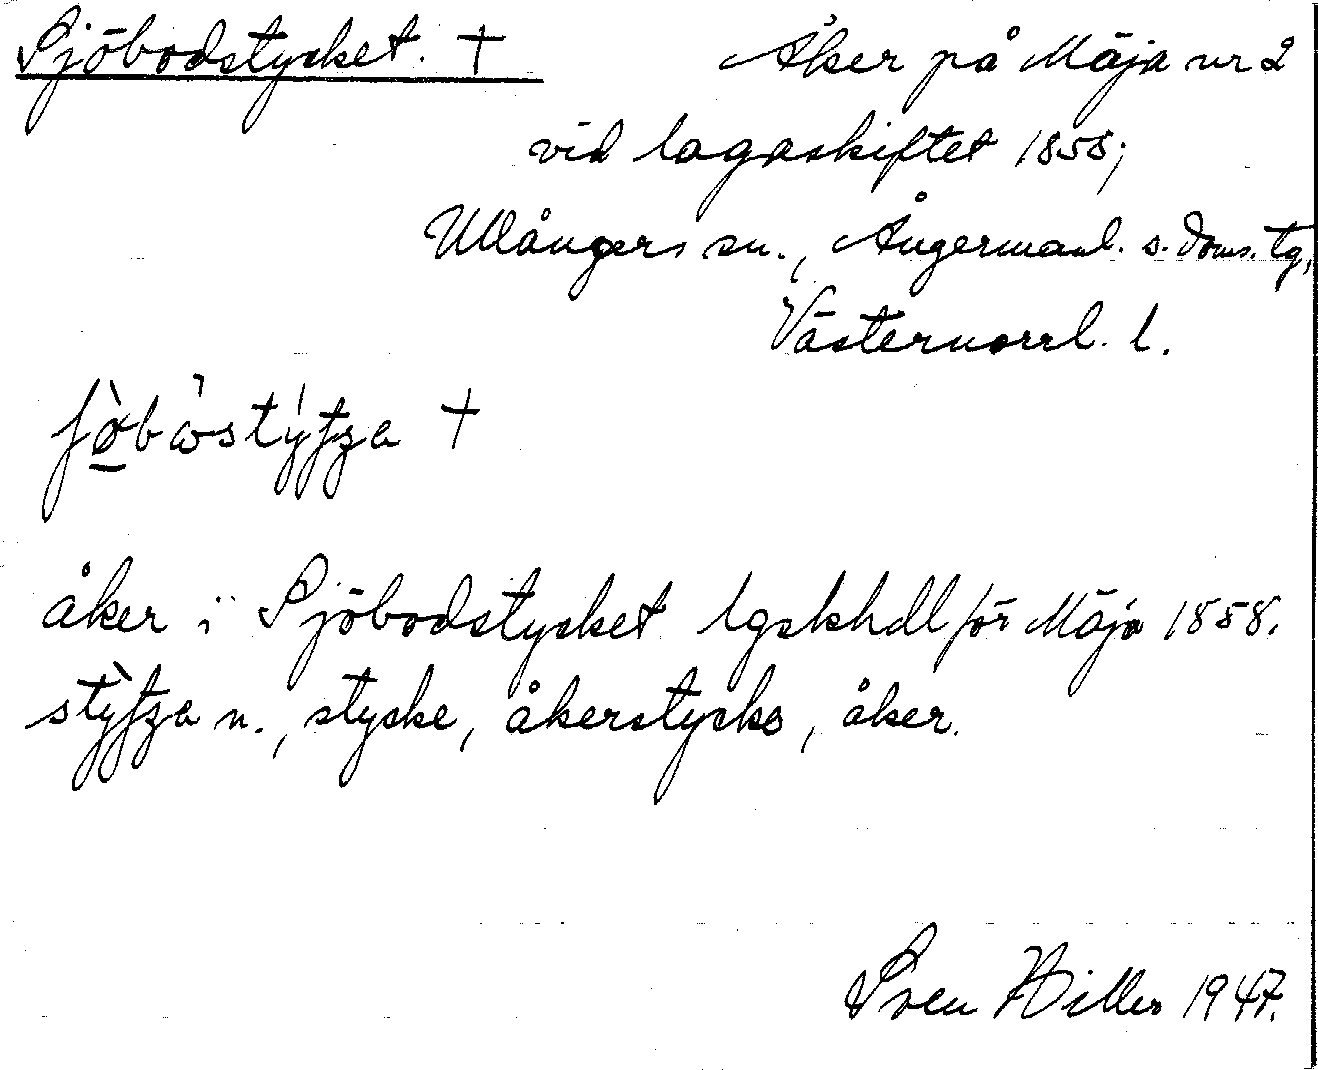 Sjöbodstycket. †
Åker på Mäja nr 2
vid lagaskiftet 1858;
Ullångers sn., Ångermanl. s. doms. tg,
Västernorrl. l.
†
åker i Sjöbodstycket lgskhdl för Mäja 1858.
n., stycke, åkerstycke, åker.
Sven Hillbo 1947.